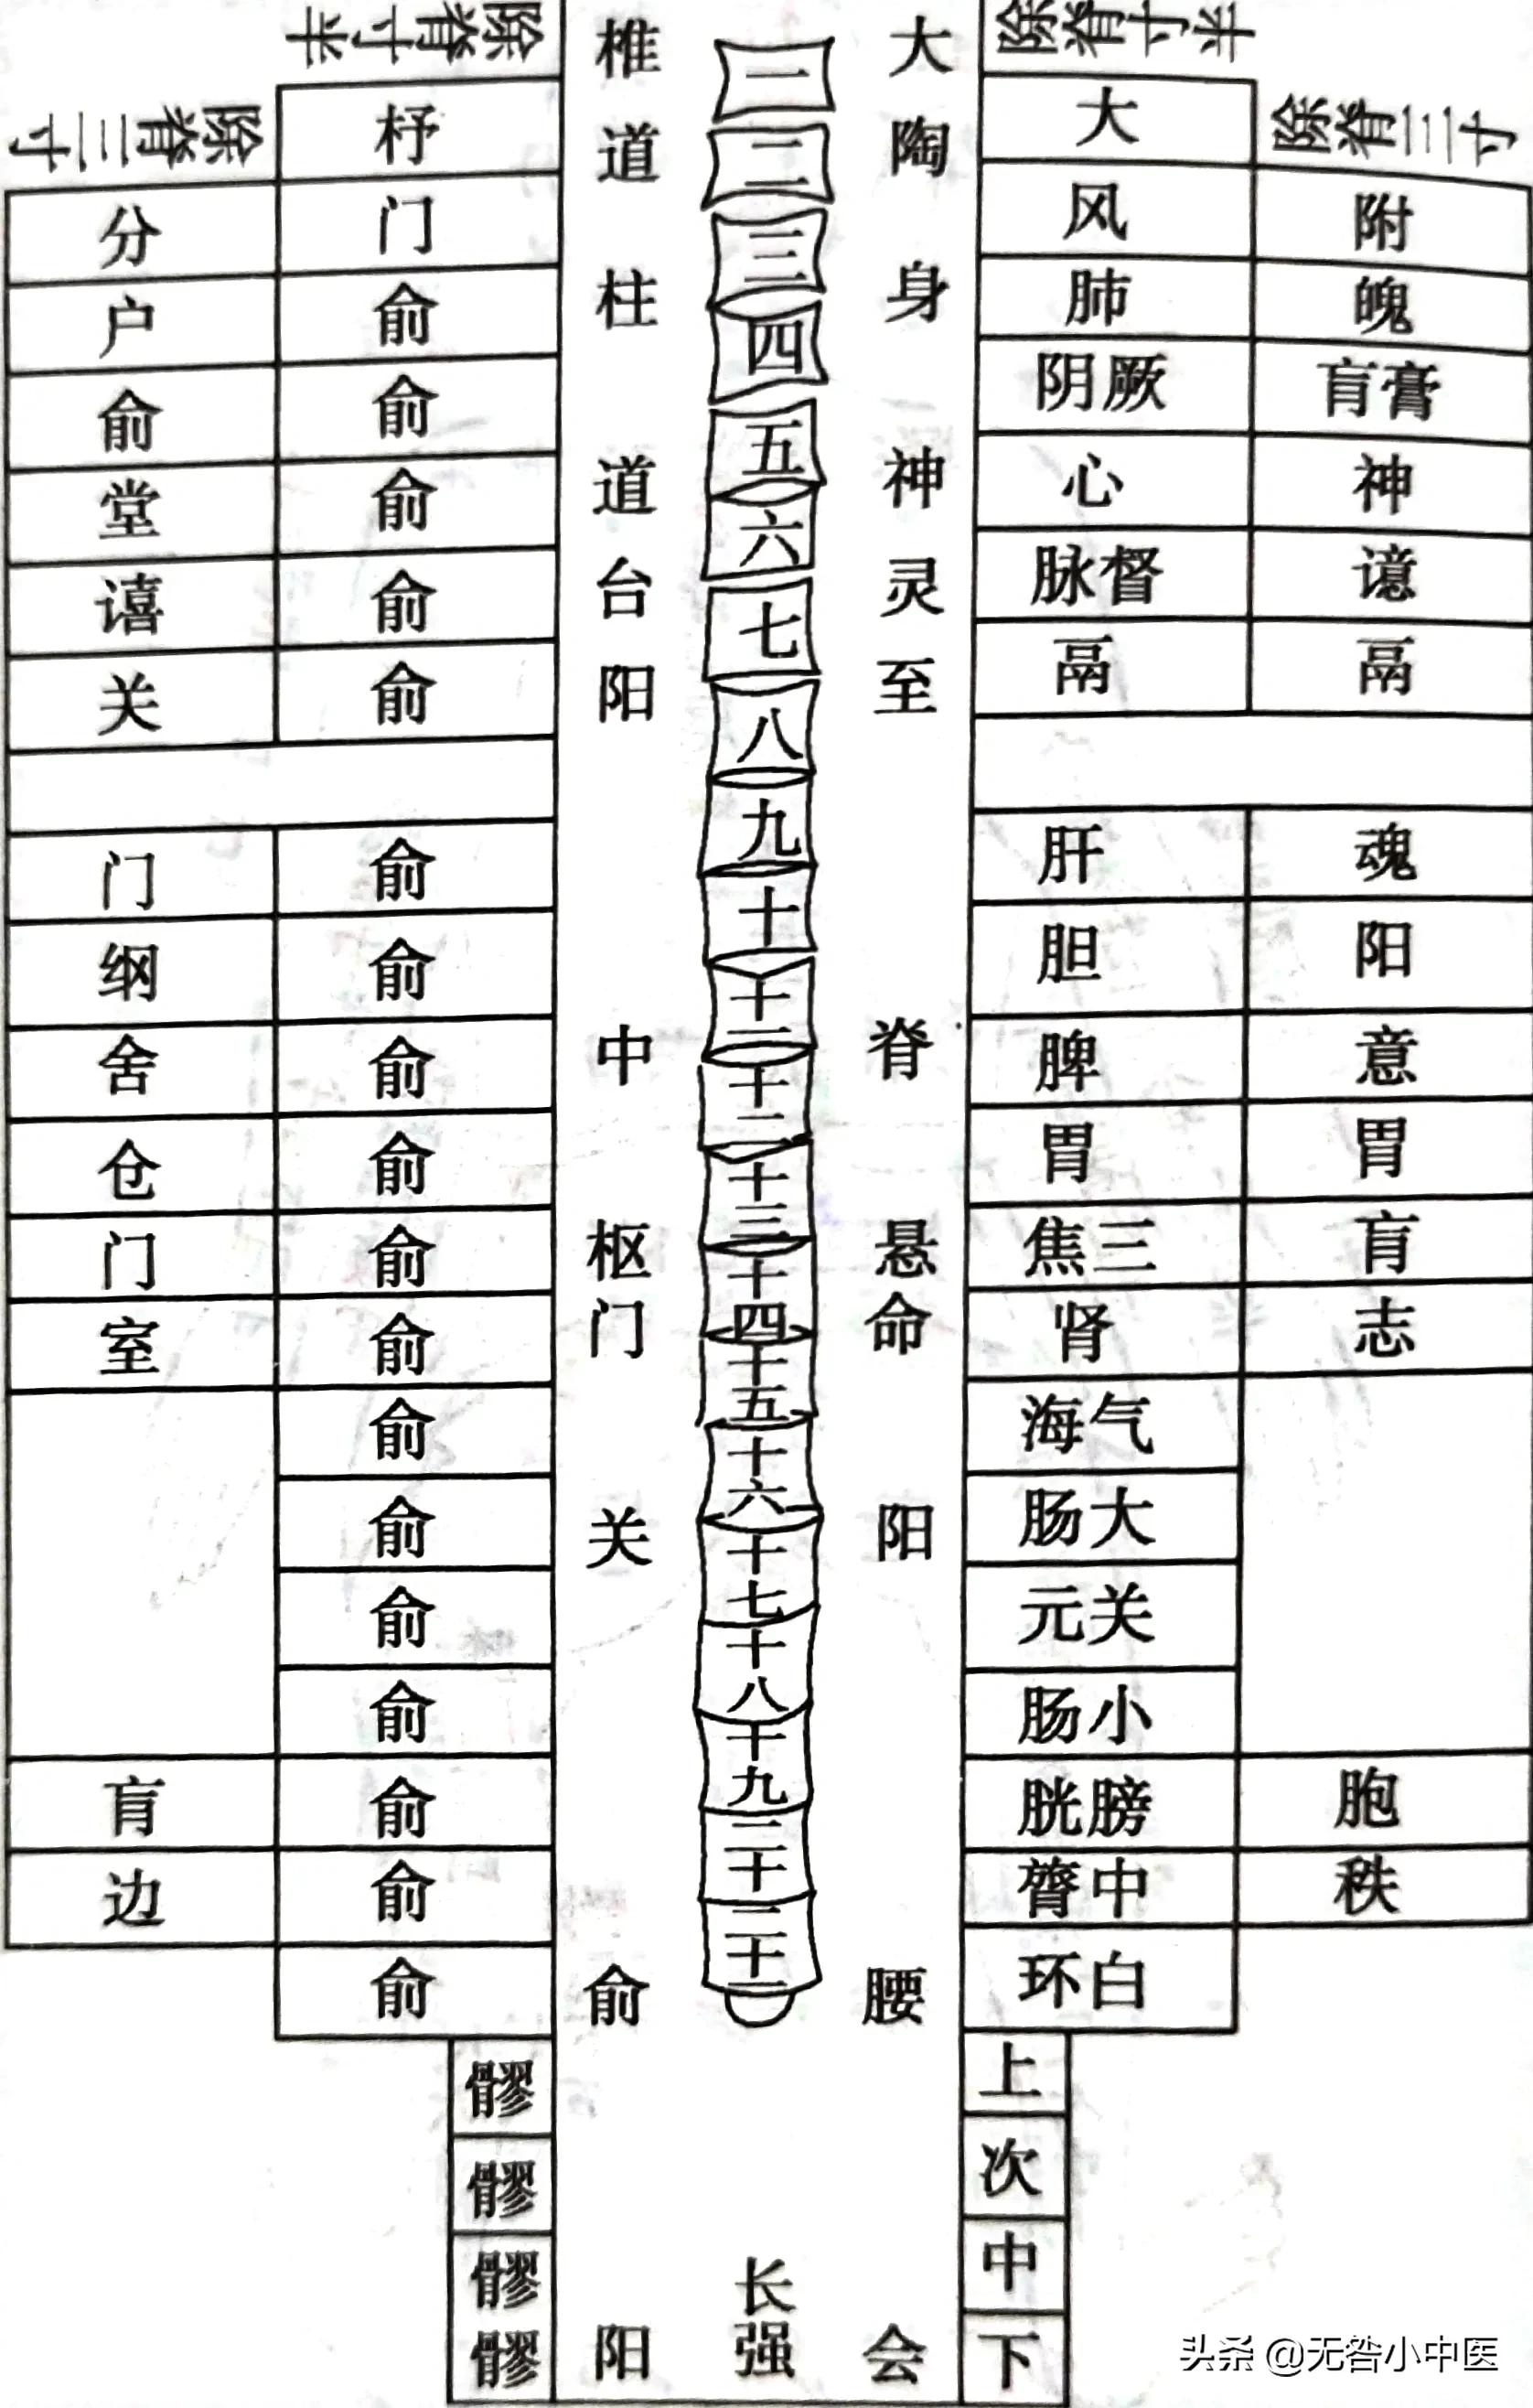 除脊寸半
除脊寸半
大 一 椎
除脊三寸
除脊三寸
大 陶 二 道 杼
附 风 三 门 分
魄 肺 身 四 柱 俞 户
膏肓 厥阴 俞 俞
神 心 神 五 道 俞 堂
譩 督脉 灵 六 台 俞 譆
膈 膈 至 七 阳 俞 关
八
魂 肝 九 俞 门
阳 胆 十 俞 纲
意 脾 脊 十一 中 俞 舍
胃 胃 十二 俞 仓
肓 三焦 悬 十三 枢 俞 门
志 肾 命 十四 门 俞 室
气海 十五 俞
大肠 阳 十六 关 俞
关元 十七 俞
小肠 十八 俞
胞 膀胱 十九 俞 肓
秩 中膂 二十 俞 边
白环 腰 二十一 俞 俞
上 髎
次 髎
中 髎
下 髎
会 长强 阳
头条 @无咎小中医